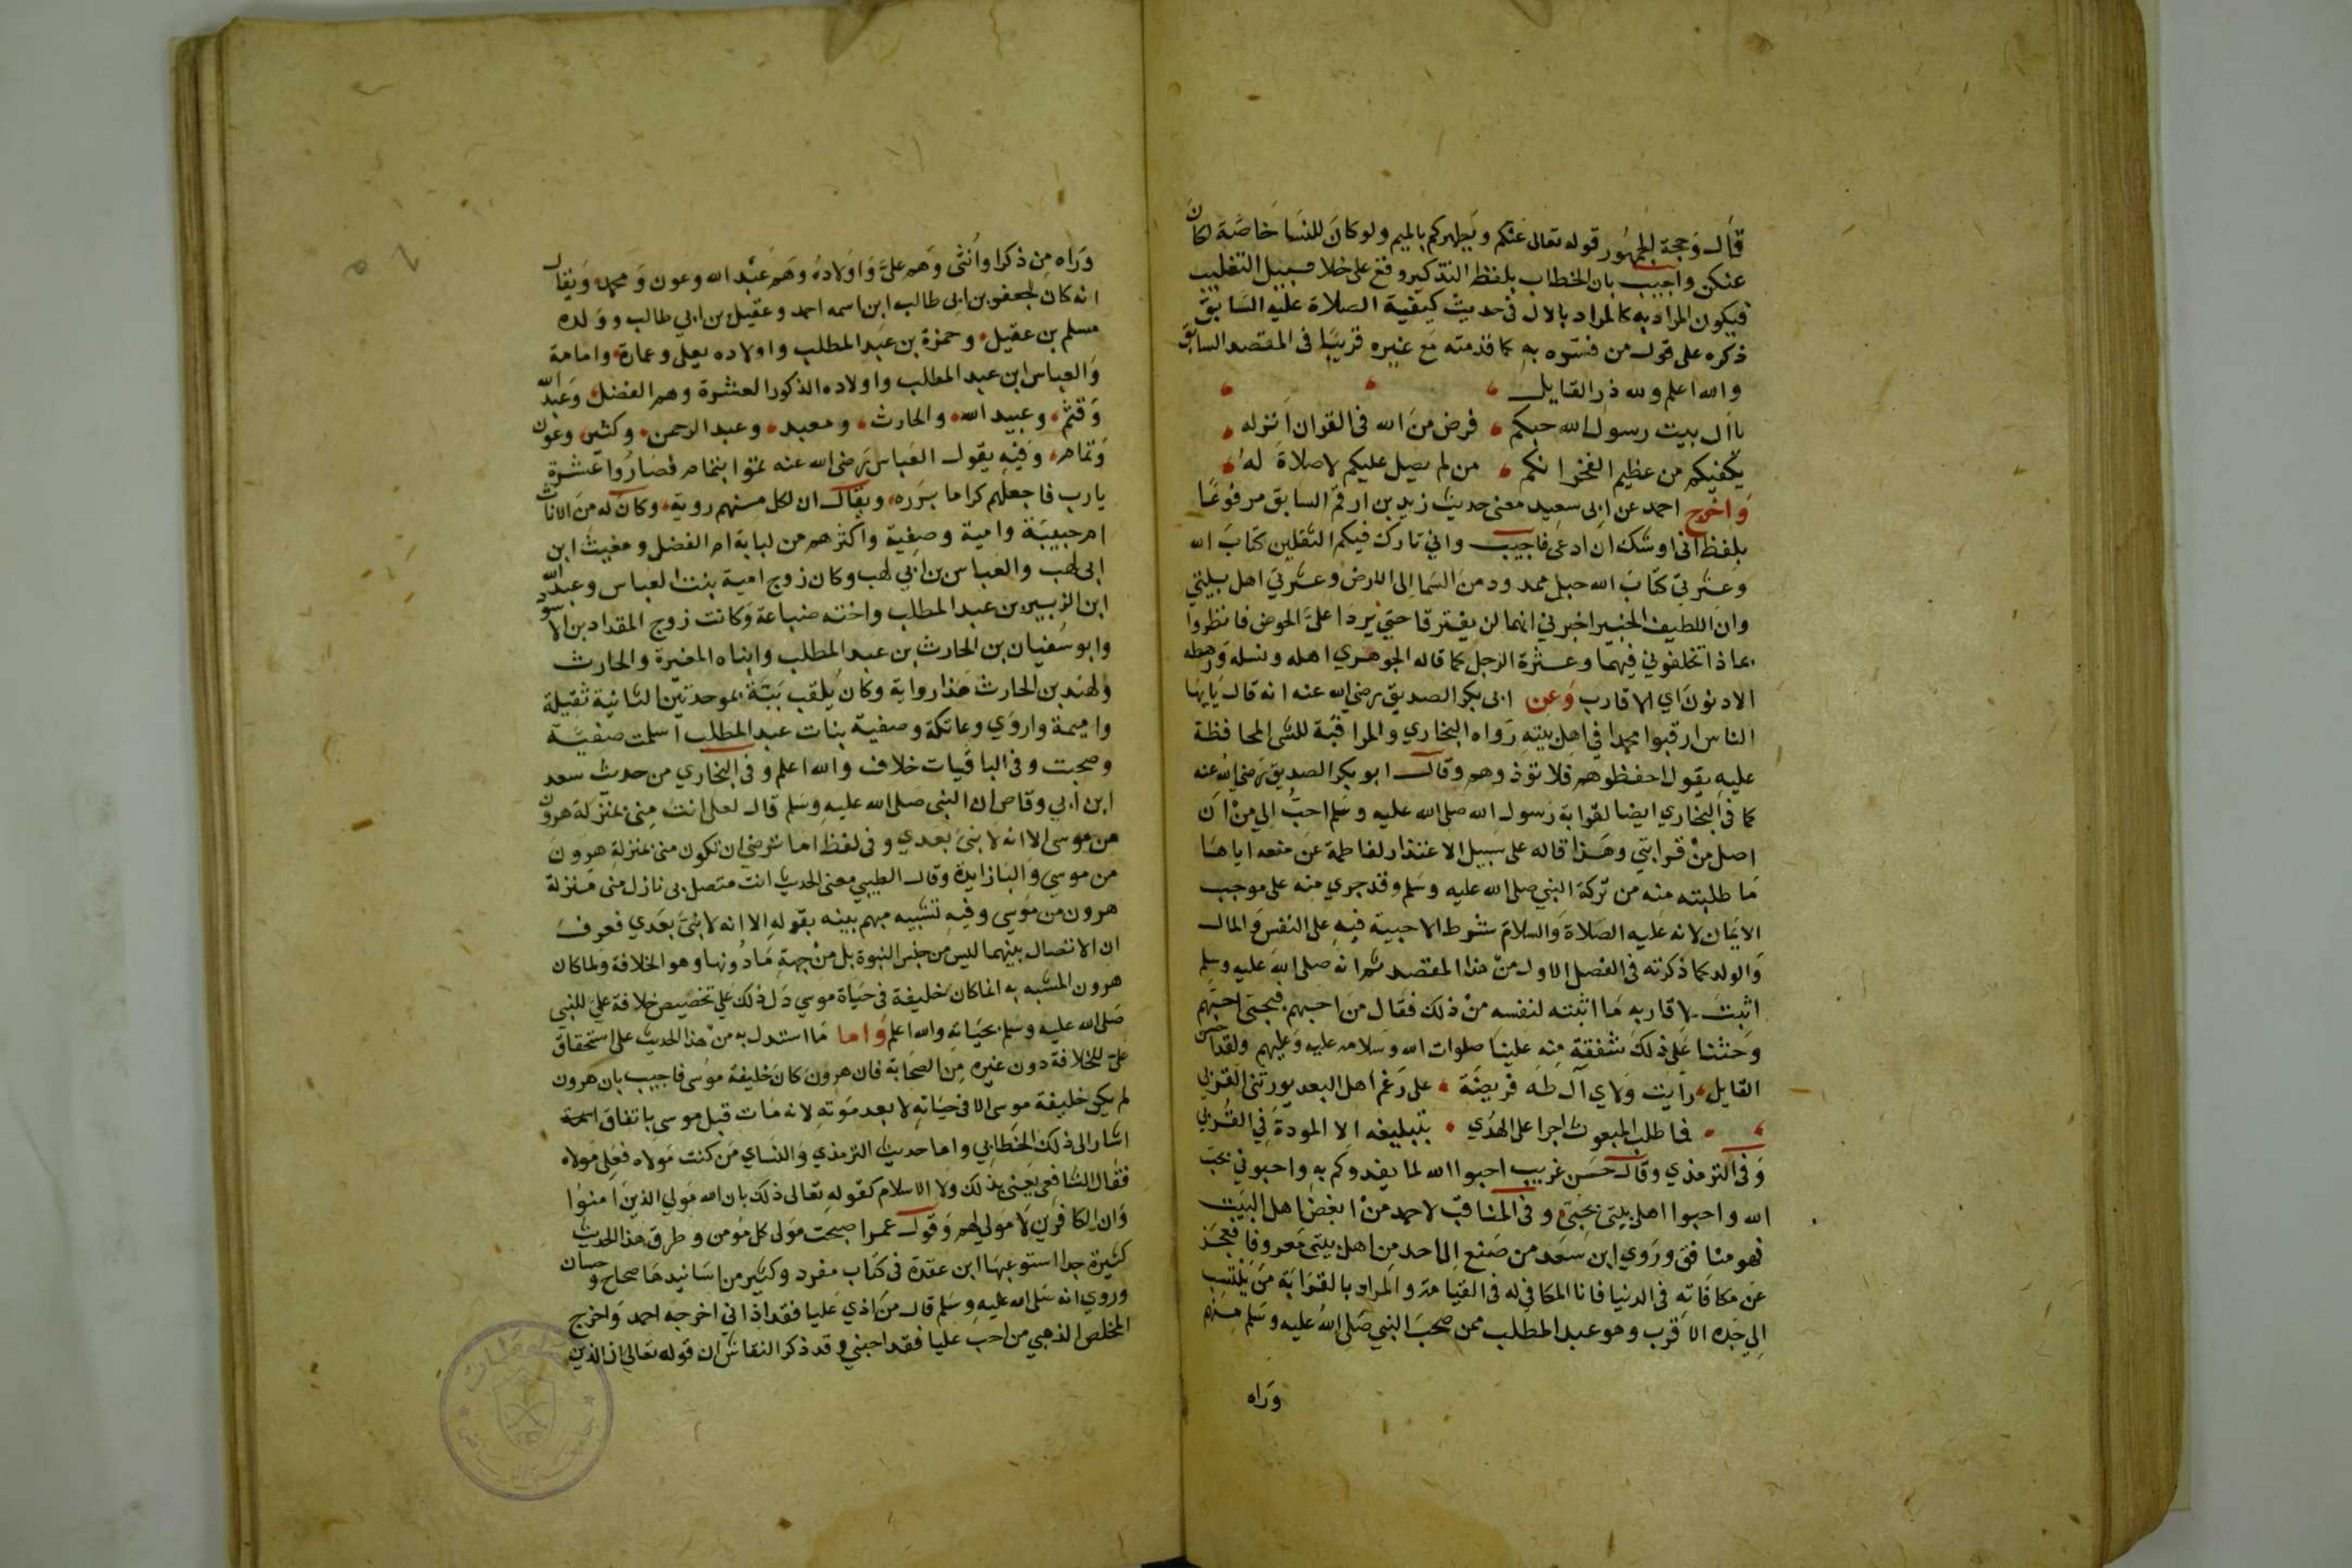 قال وحجة الجمهور قوله تعالى عنكم ويطهركم بالميم ولو كان للنسا خاصة لكان
عنكن واجيب بان الخطاب بلفظ التذكير وقع على خلا سبيل التغليب
فيكون المراد به كالمراد بالال في حديث كيفية الصلاة عليه السابق
ذكره على قول من فسره به كما قدمته مع غيره قريبا في المقصد السابق
والله اعلم ولله در القايل
يا آل بيت رسول الله حبكم فرض من الله في القران انزله
يكفيكم من عظيم الفخر انكم من لم يصل عليكم لا صلاة له
واخرج احمد عن ابي سعيد معنى حديث زيد بن ارقم السابق مرفوعا
بلفظ اني اوشك ان ادعى فاجيب واني تارك فيكم الثقلين كتاب الله
وعترتي كتاب الله حبل ممدود من السما الى الارض وعترتي اهل بيتي
وان اللطيف الخبير اخبرني انهما لن يفترقا حتى يردا على الحوض فانظروا
بماذا تخلفوني فيهما وعترة الرجل كما قاله الجوهري اهله ونسله ورهطه
الادنون اي الاقارب وعن ابي بكر الصديق رضي الله عنه انه قال يايها
الناس ارقبوا محمدا في اهل بيته رواه البخاري والمراقبة للشي المحافظة
عليه يقول احفظوهم فلا توذوهم وقال ابو بكر الصديق رضي الله عنه
كما في البخاري ايضا لقرابة رسول الله صلى الله عليه وسلم احب الي من ان
اصل من قرابتي وهذا قاله على سبيل الاعتذار لفاطمة عن منعه اياها
ما طلبته منه من تركة النبي صلى الله عليه وسلم وقد جرى منه على موجب
الايمان لانه عليه الصلاة والسلام شرط الاحبية فيه على النفس والمال
والولد كما ذكرته في الفصل الاول من هذا المقصد ثم انه صلى الله عليه وسلم
اثبت لاقاربه ما اثبته لنفسه من ذلك فقال من احبهم فبحبي احبهم
وحثنا على ذلك شفقة منه علينا صلوات الله وسلامه عليه وعليهم ولقد احسن
القايل رايت ولاي آل طه فريضة على رغم اهل البعد يورثني القربي
فما طلب المبعوث اجرا على الهدي بتبليغه الا المودة في القربي
وفي الترمذي وقال حسن غريب احبوا الله لما يغدوكم به واحبوني بحب
الله واحبوا اهل بيتي بحبي وفي المناقب لاحمد من ابغض اهل البيت
فهو منافق وروي ابن سعد من صنع الى احد من اهل بيتي معروفا فعجز
عن مكافاته في الدنيا فانا المكافي له في القيامة والمراد بالقرابة من ينتسب
الى جده الاقرب وهو عبد المطلب ممن صحب النبي صلى الله عليه وسلم منهم
وراه
وراه من ذكر او انثى وهم علي واولاده وهم عبد الله وعون ومحمد ويقال
انه كان لجعفر بن ابي طالب ابن اسمه احمد وعقيل بن ابي طالب وولده
مسلم بن عقيل وحمزة بن عبد المطلب واولاده يعلى وعمارة وامامة
والعباس ابن عبد المطلب واولاده الذكور العشرة وهم الفضل وعبد الله
وقثم وعبيد الله والحارث ومعبد وعبد الرحمن وكثير وعون
وتمام وفيه يقول العباس رضي الله عنه تموا بتمام فصاروا عشرة
يارب فاجعلهم كراما بررة ويقال ان لكل منهم روية وكان له من الاناث
ام حبيبة وامية وصفية واكثرهم من لبابة ام الفضل ومغيث ابن
ابي لهب والعباس بن ابي لهب وكان زوج امية بنت العباس وعبد الله
ابن الزبير بن عبد المطلب واخته ضباعة وكانت زوج المقداد بن الاسود
وابو سفيان بن الحارث بن عبد المطلب وابناه المغيرة والحارث
ولهند بن الحارث هذا رواية وكان يلقب ببة بموحدتين الثانية ثقيلة
واميمة واروي وعاتكة وصفية بنات عبد المطلب اسلمت صفية
وصحبت وفي الباقيات خلاف والله اعلم وفي البخاري من حديث سعد
ابن ابي وقاص ان النبي صلى الله عليه وسلم قال لعلي انت مني بمنزلة هرون
من موسى الا انه لا نبي بعدي وفي لفظ اما ترضى ان تكون مني بمنزلة هرون
من موسي والبا زايدة وقال الطيبي معنى الحديث انت متصل بي نازل مني منزلة
هرون من موسي وفيه تشبيه مبهم بينه بقوله الا انه لا نبي بعدي فعرف
ان الاتصال بينهما ليس من جنس النبوة بل من جهة ما دونها وهو الخلافة ولما كان
هرون المشبه به انما كان خليفة في حياة موسي دل ذلك علي تخصيص خلافة علي للنبي
صلى الله عليه وسلم بحياته والله اعلم واما ما استدل به من هذا الحديث على استحقاق
علي للخلافة دون غيره من الصحابة فان هرون كان خليفة موسى فاجيب بان هرون
لم يكن خليفة موسى الا في حياته لا بعد موته لانه مات قبل موسى باتفاق
اشار الى ذلك الخطابي واما حديث الترمذي والنساي من كنت مولاه فعلي مولاه
فقال الشافعي يعني بذلك ولا الاسلام كقوله تعالى ذلك بان الله مولي الذين امنوا
وان الكافرين لا مولى لهم وقول عمر اصبحت مولى كل مومن وطرق هذا الحديث
كثيرة جدا استوعبها ابن عقدة في كتاب مفرد وكثير من اسانيدها صحاح وحسان
وروي انه صلى الله عليه وسلم قال من اذي عليا فقد اذاني اخرجه احمد واخرج
المخلص الذهبي من احب عليا فقد احبني وقد ذكر النقاش ان قوله تعالى ان الذين